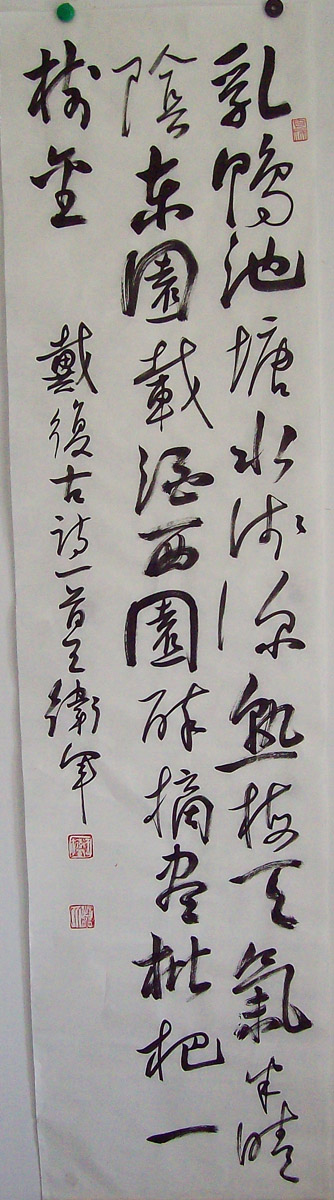 乳鴨池塘水淺深熟梅天氣半晴
陰東園載酒西園醉摘盡枇杷一
樹金 戴復古詩一首王衛軍